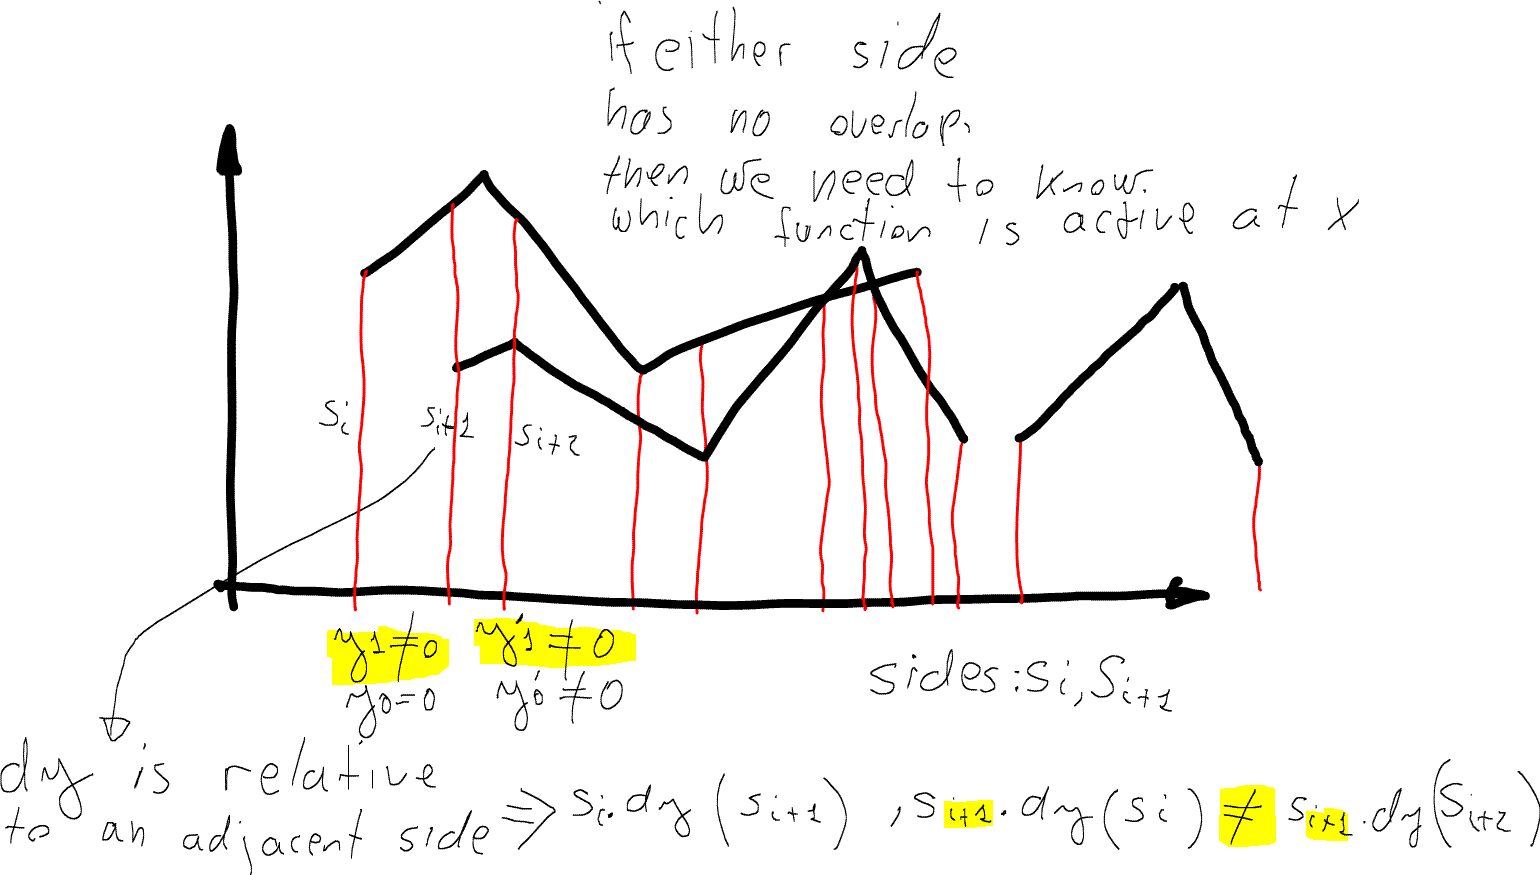 if either side
has no overlap,
then we need to know.
which function is active at x
Si
Si+1
Si+2
y1≠0
y'1≠0
y0=0
y'0≠0
sides: Si, Si+1
dy is relative
to an adjacent side => Si.dy(Si+1), Si+1.dy(Si) ≠ Si+1.dy(Si+2)